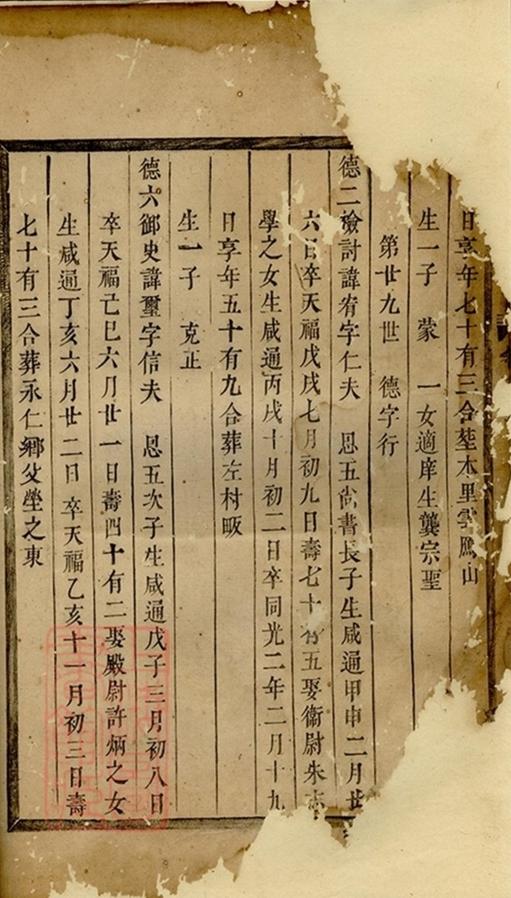 日享年七十有三合塟本里雲鳳山
生一子　蒙　一女適庠生龔宗聖
第廿九世　德字行
德二檢討諱宥字仁夫　恩五尚書長子生咸通甲申二月廿
六日卒天福戊戌七月初九日壽七十有五娶衞尉朱志
學之女生咸通丙戌十月初二日卒同光二年二月十九
日享年五十有九合葬左村畈
生一子　克正
德六御史諱璽字信夫　恩五次子生咸通戊子三月初八日
卒天福己巳六月廿一日壽四十有二娶殿尉許炳之女
生咸通丁亥六月廿二日卒天福乙亥十一月初三日壽
七十有三合葬永仁鄉父塋之東